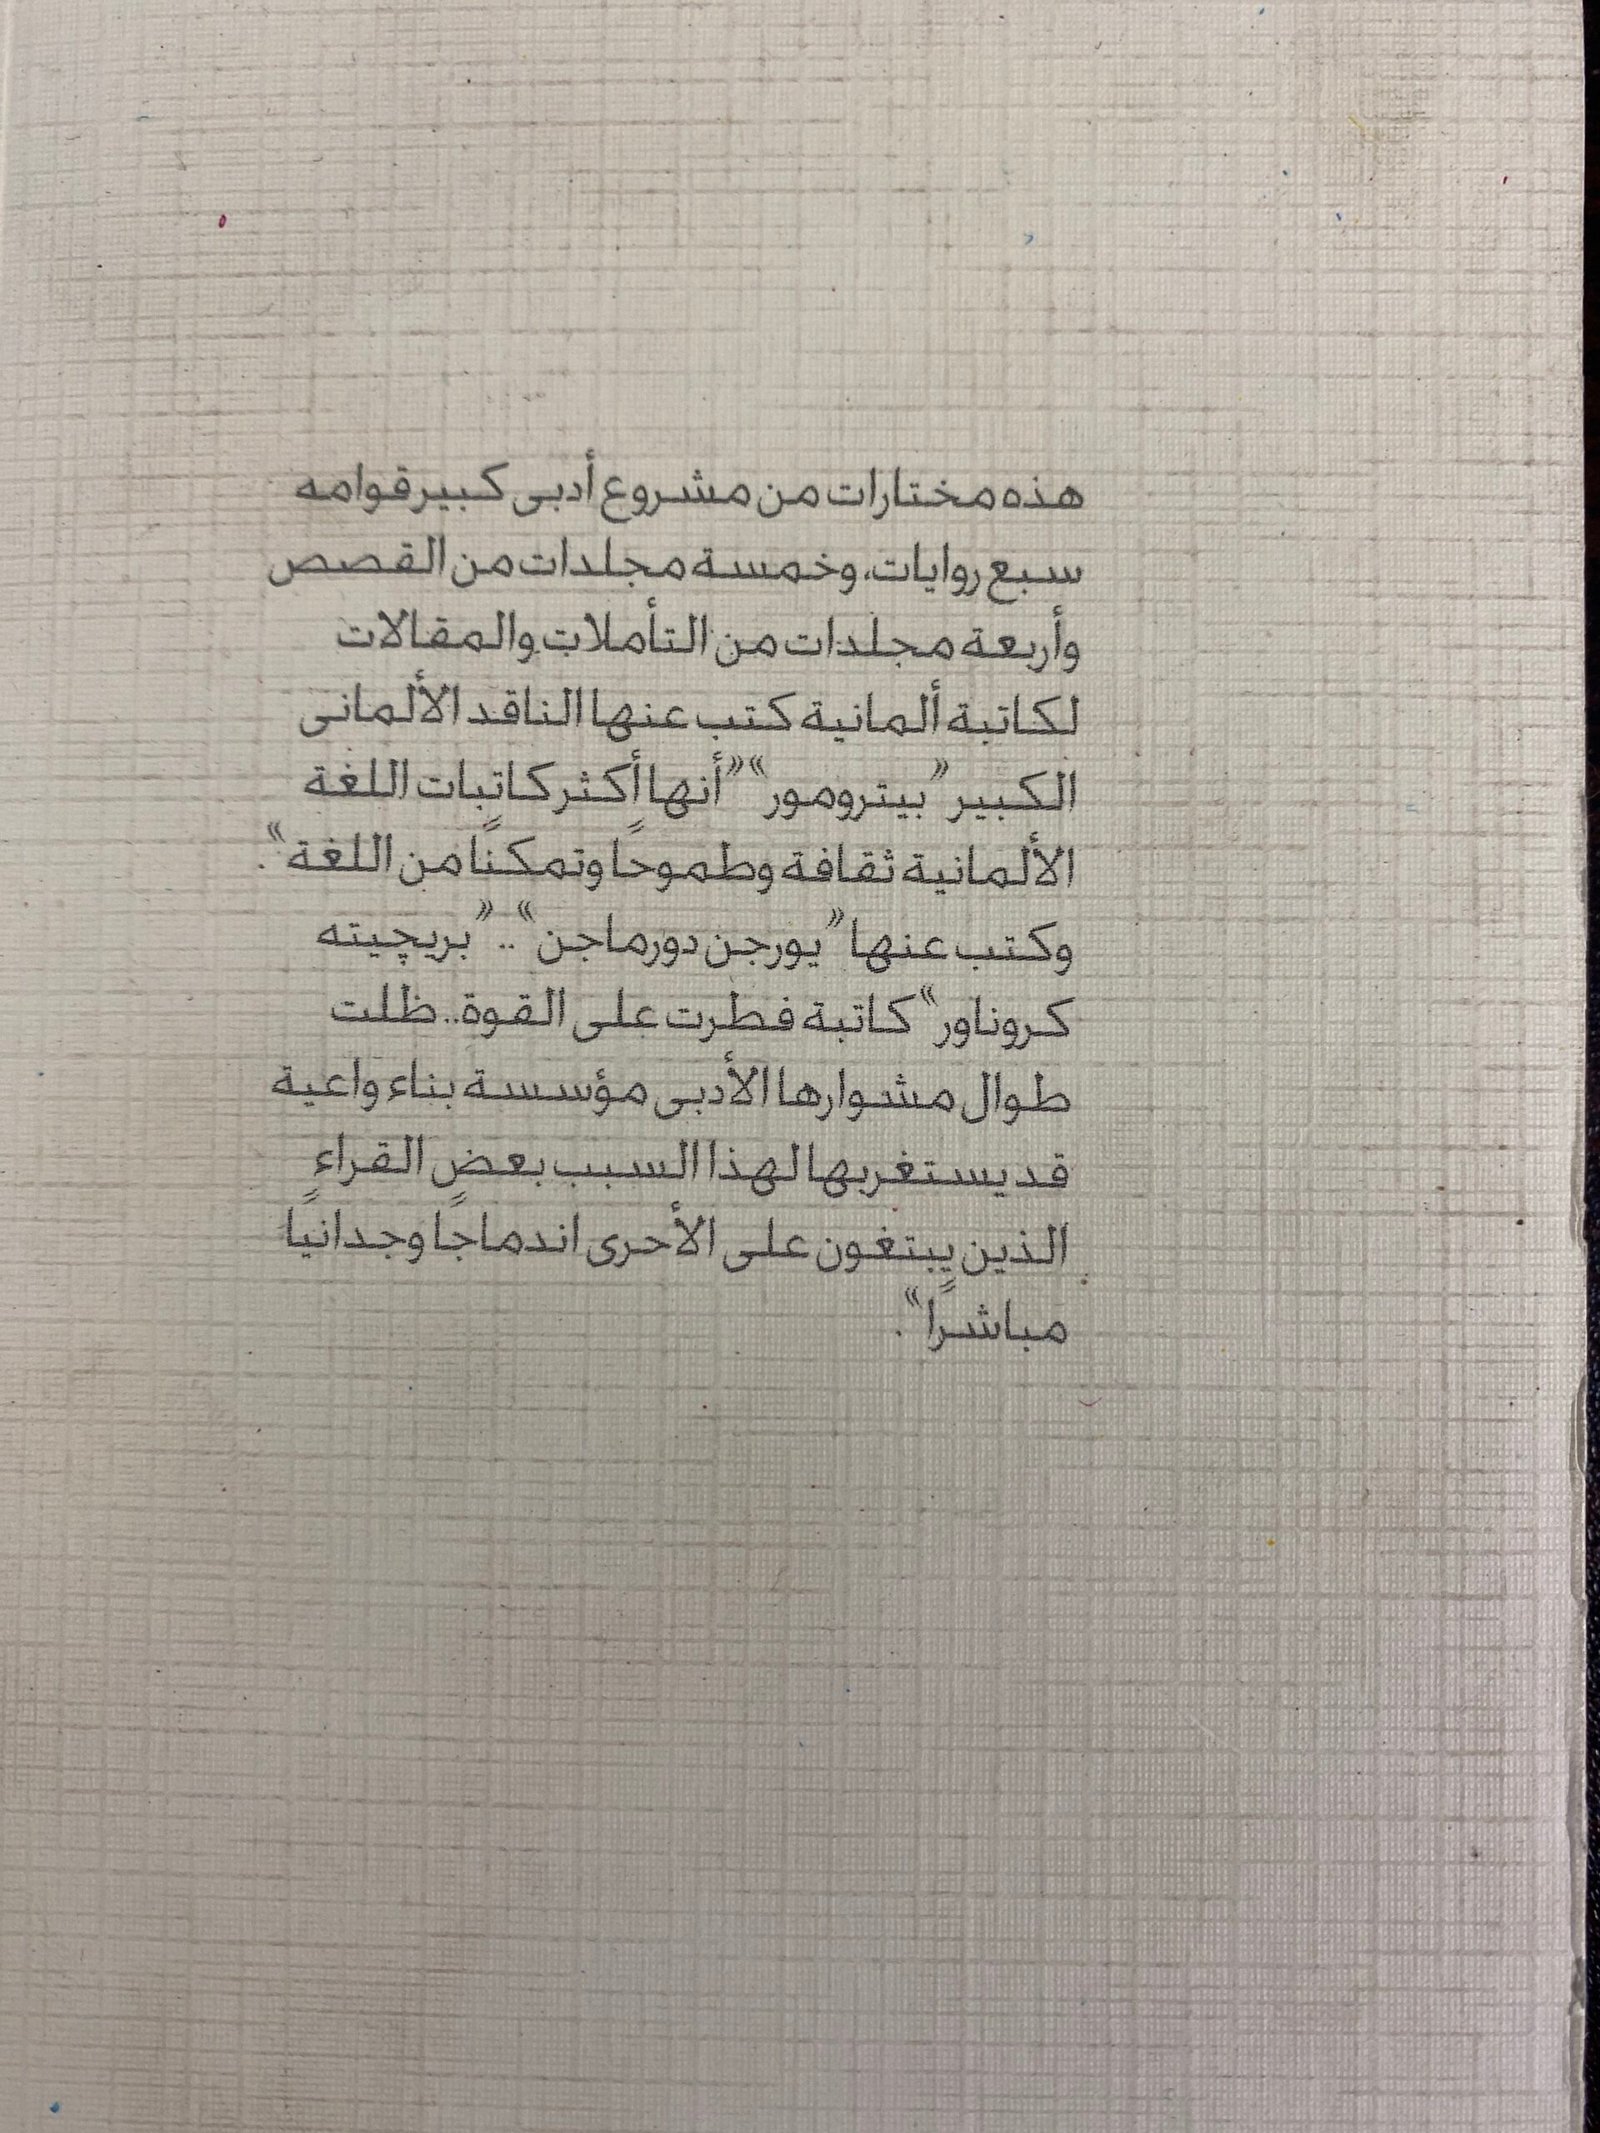 هذه مختارات من مشروع أدبى كبير قوامه
سبع روايات، وخمسة مجلدات من القصص
وأربعة مجلدات من التأملات والمقالات
لكاتبة ألمانية كتب عنها الناقد الألمانى
الكبير "بيترومور" "أنها أكثر كاتبات اللغة
الألمانية ثقافة وطموحًا وتمكنًا من اللغة".
وكتب عنها "يورجن دورماجن".. "بريچيته
كروناور" كاتبة فطرت على القوة.. ظلت
طوال مشوارها الأدبى مؤسسة بناء واعية
قد يستغربها لهذا السبب بعض القراء
الذين يبتغون على الأحرى اندماجًا وجدانيًا
مباشرًا".